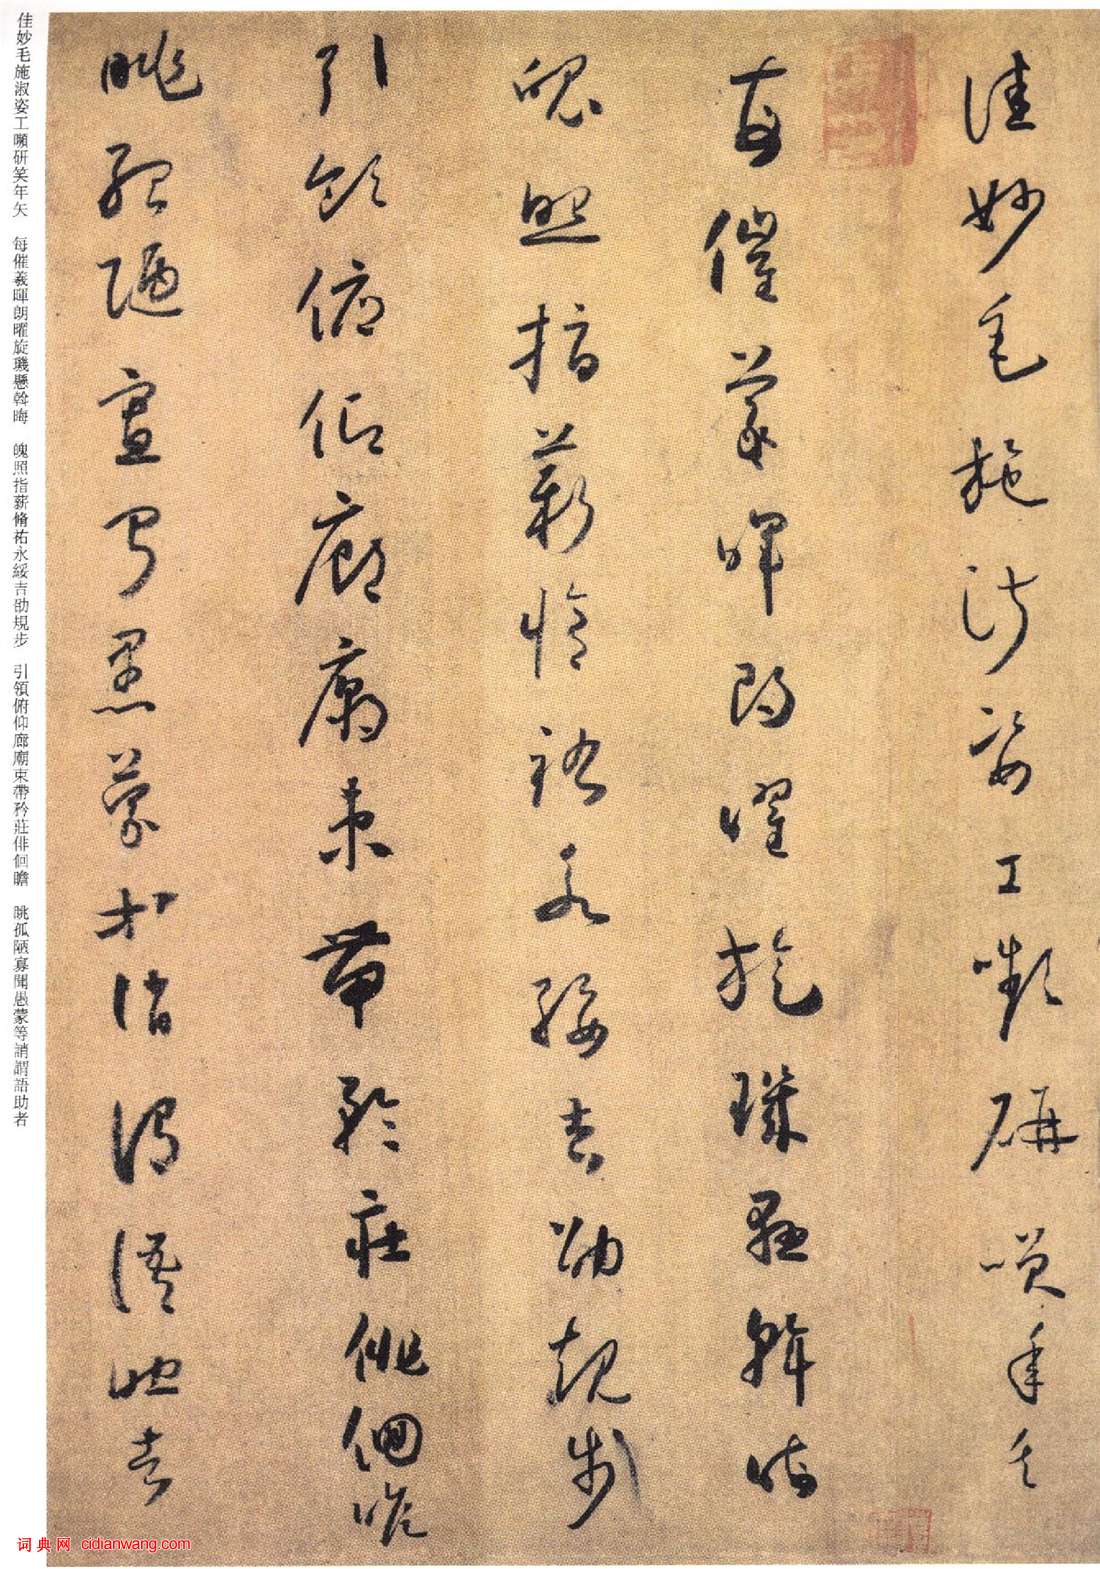 佳妙毛施淑姿工嚬研笑年矢
每催羲暉朗曜旋璣懸斡晦
魄照指薪脩祜永綏吉劭規步
引領俯仰廊廟束帶矜莊俳佪瞻
眺孤陋寡聞愚蒙等誚謂語助者
佳妙毛施淑姿工嚬研笑年矢 每催羲暉朗曜旋璣懸斡晦 魄照指薪脩祐永綏吉劭規步 引領俯仰廊廟束帶矜莊俳佪瞻 眺孤陋寡聞愚蒙等誚謂語助者
词典网 cidianwang.com